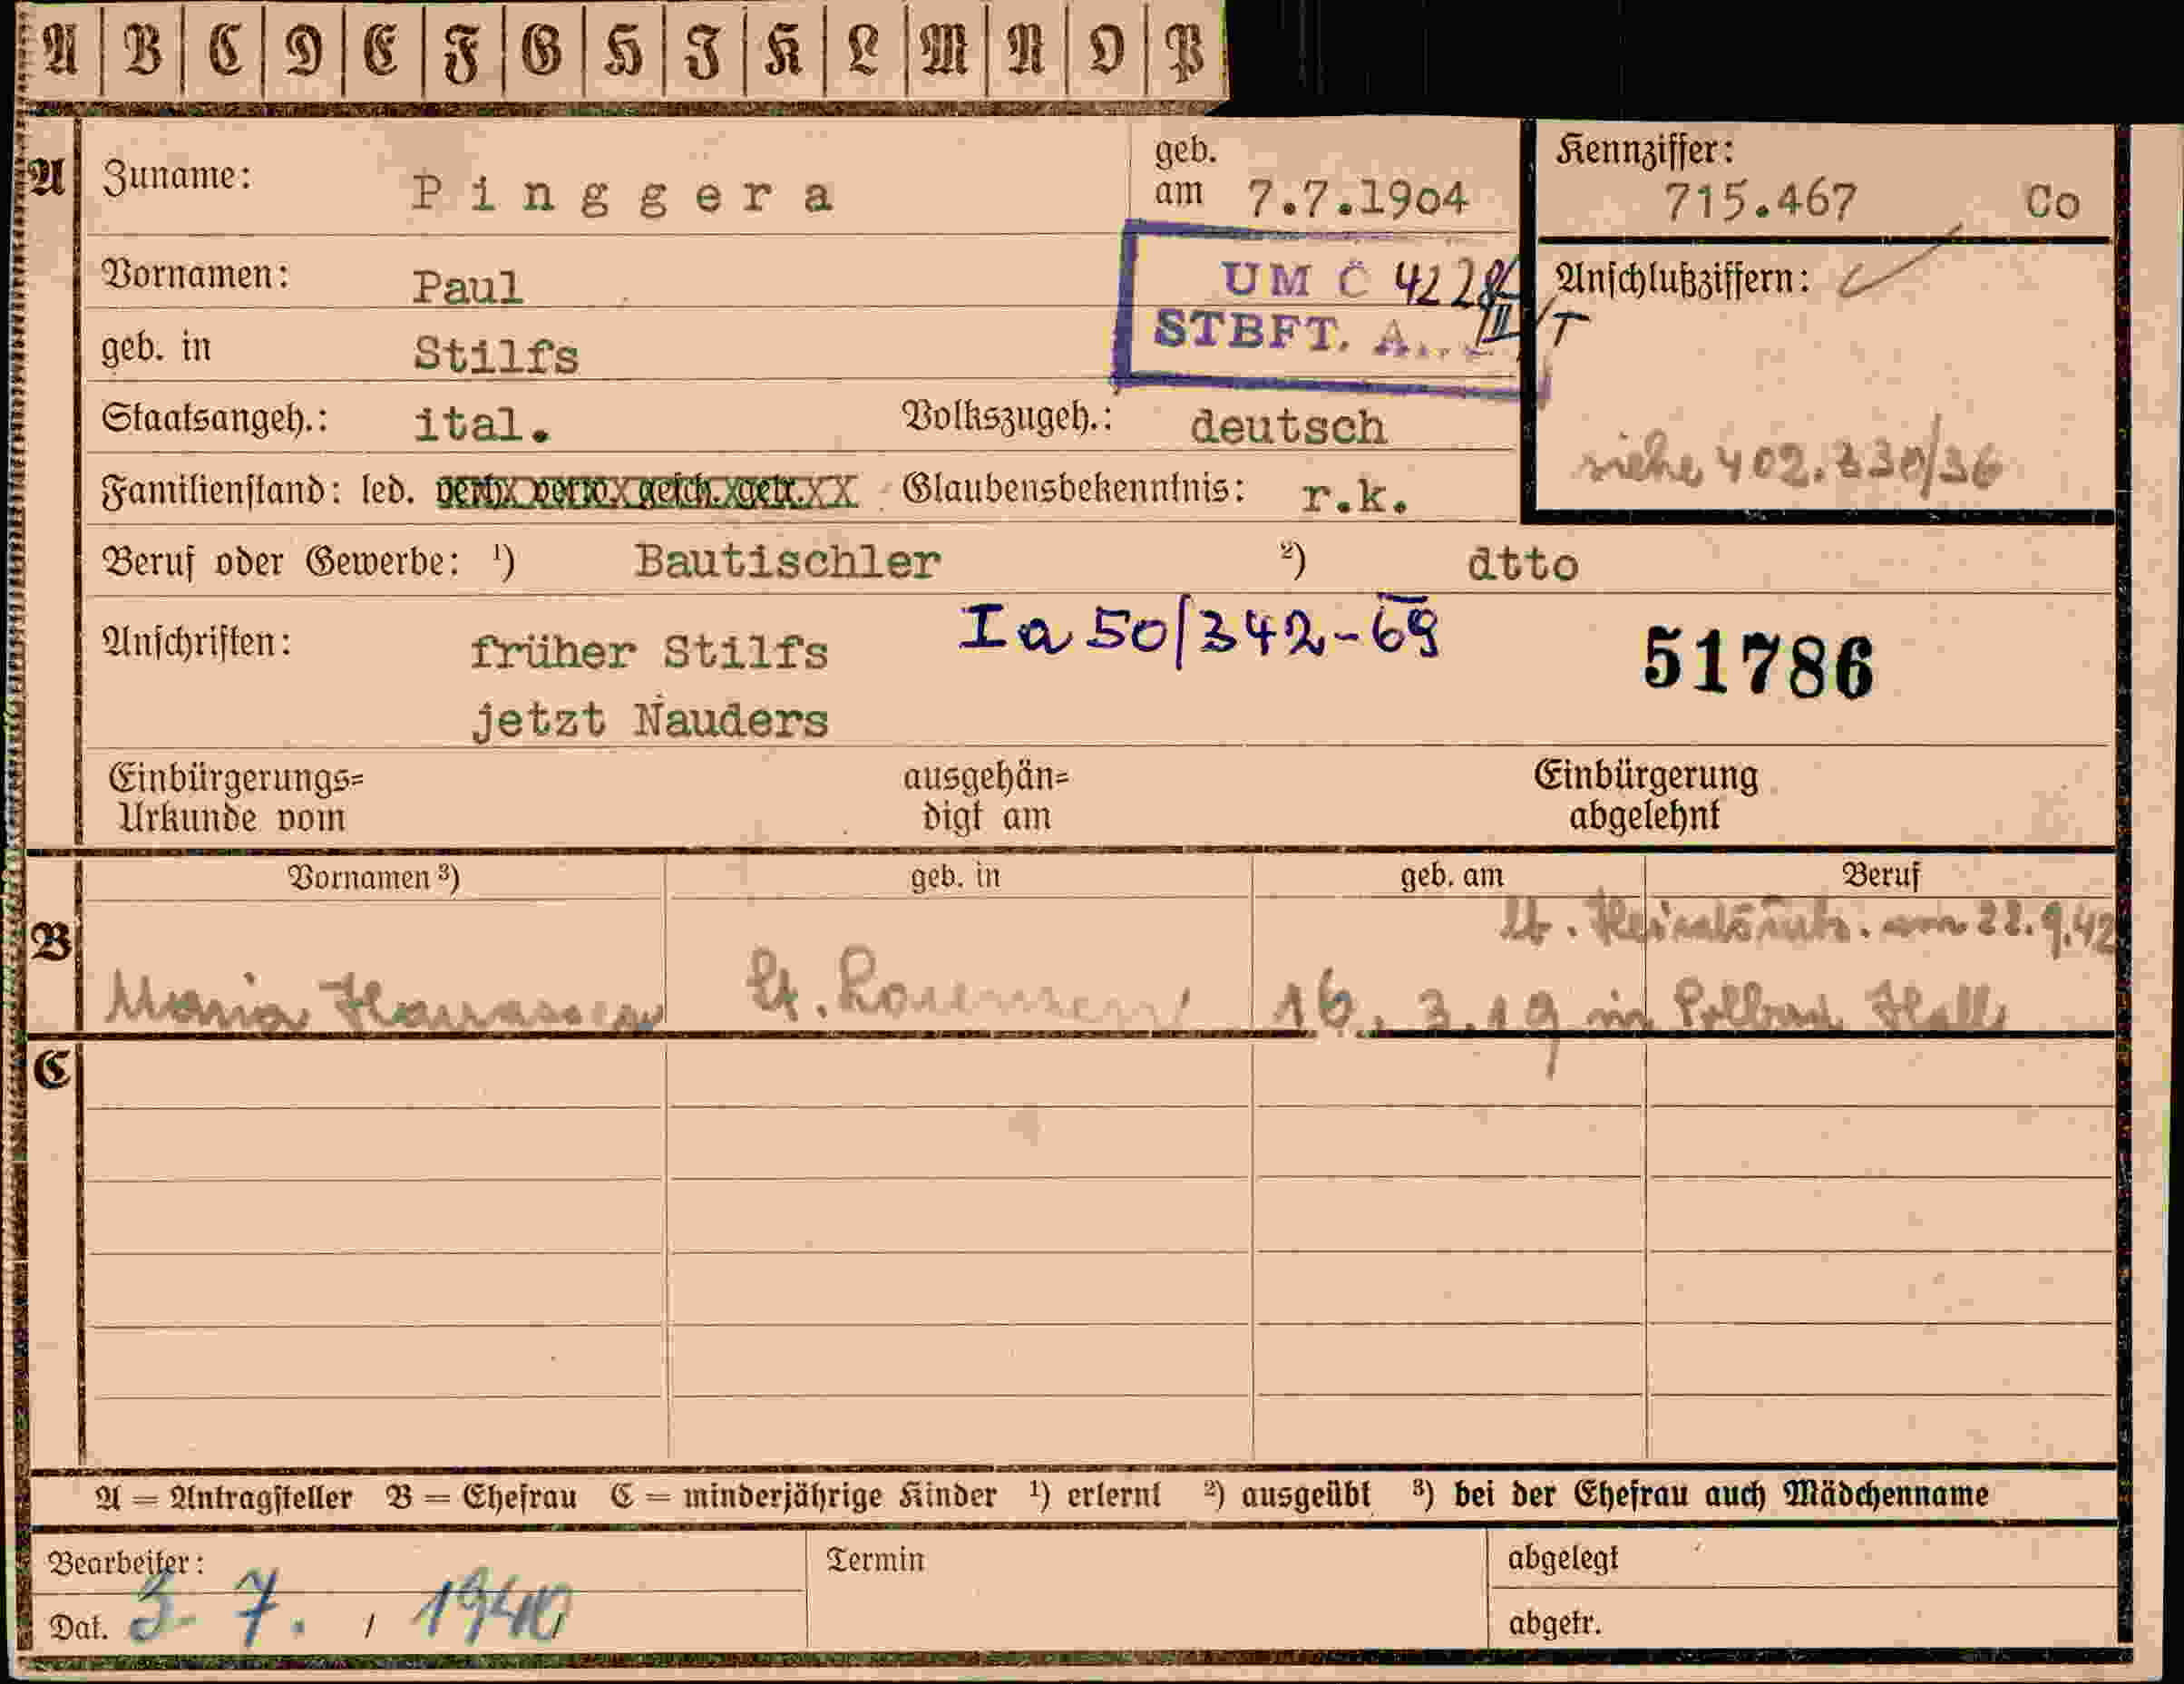 A B C D E F G H I K L M N O P
A Zuname: Pinggera geb. am 7.7.1904 Kennziffer: 715.467 Co
Vornamen: Paul UM Č 422 Anschlußziffern:
geb. in Stilfs STBFT. A... III/T
Staatsangeh.: ital. Volkszugeh.: deutsch
siehe 402.330/36
Familienstand: led. verh. verw. gesch. getr. Glaubensbekenntnis: r.k.
Beruf oder Gewerbe: ¹) Bautischler ²) dtto
Anschriften: früher Stilfs Ia 50/342-69 51786
jetzt Nauders
Einbürgerungs= ausgehän= Einbürgerung
Urkunde vom digt am abgelehnt
Vornamen ³) geb. in geb. am Beruf
B
22.9.42
Maria 16.3.19 in Hall
C
A = Antragsteller B = Ehefrau C = minderjährige Kinder ¹) erlernt ²) ausgeübt ³) bei der Ehefrau auch Mädchenname
Bearbeiter: Termin abgelegt
Dat. 3. 7. / 1940 abgetr.